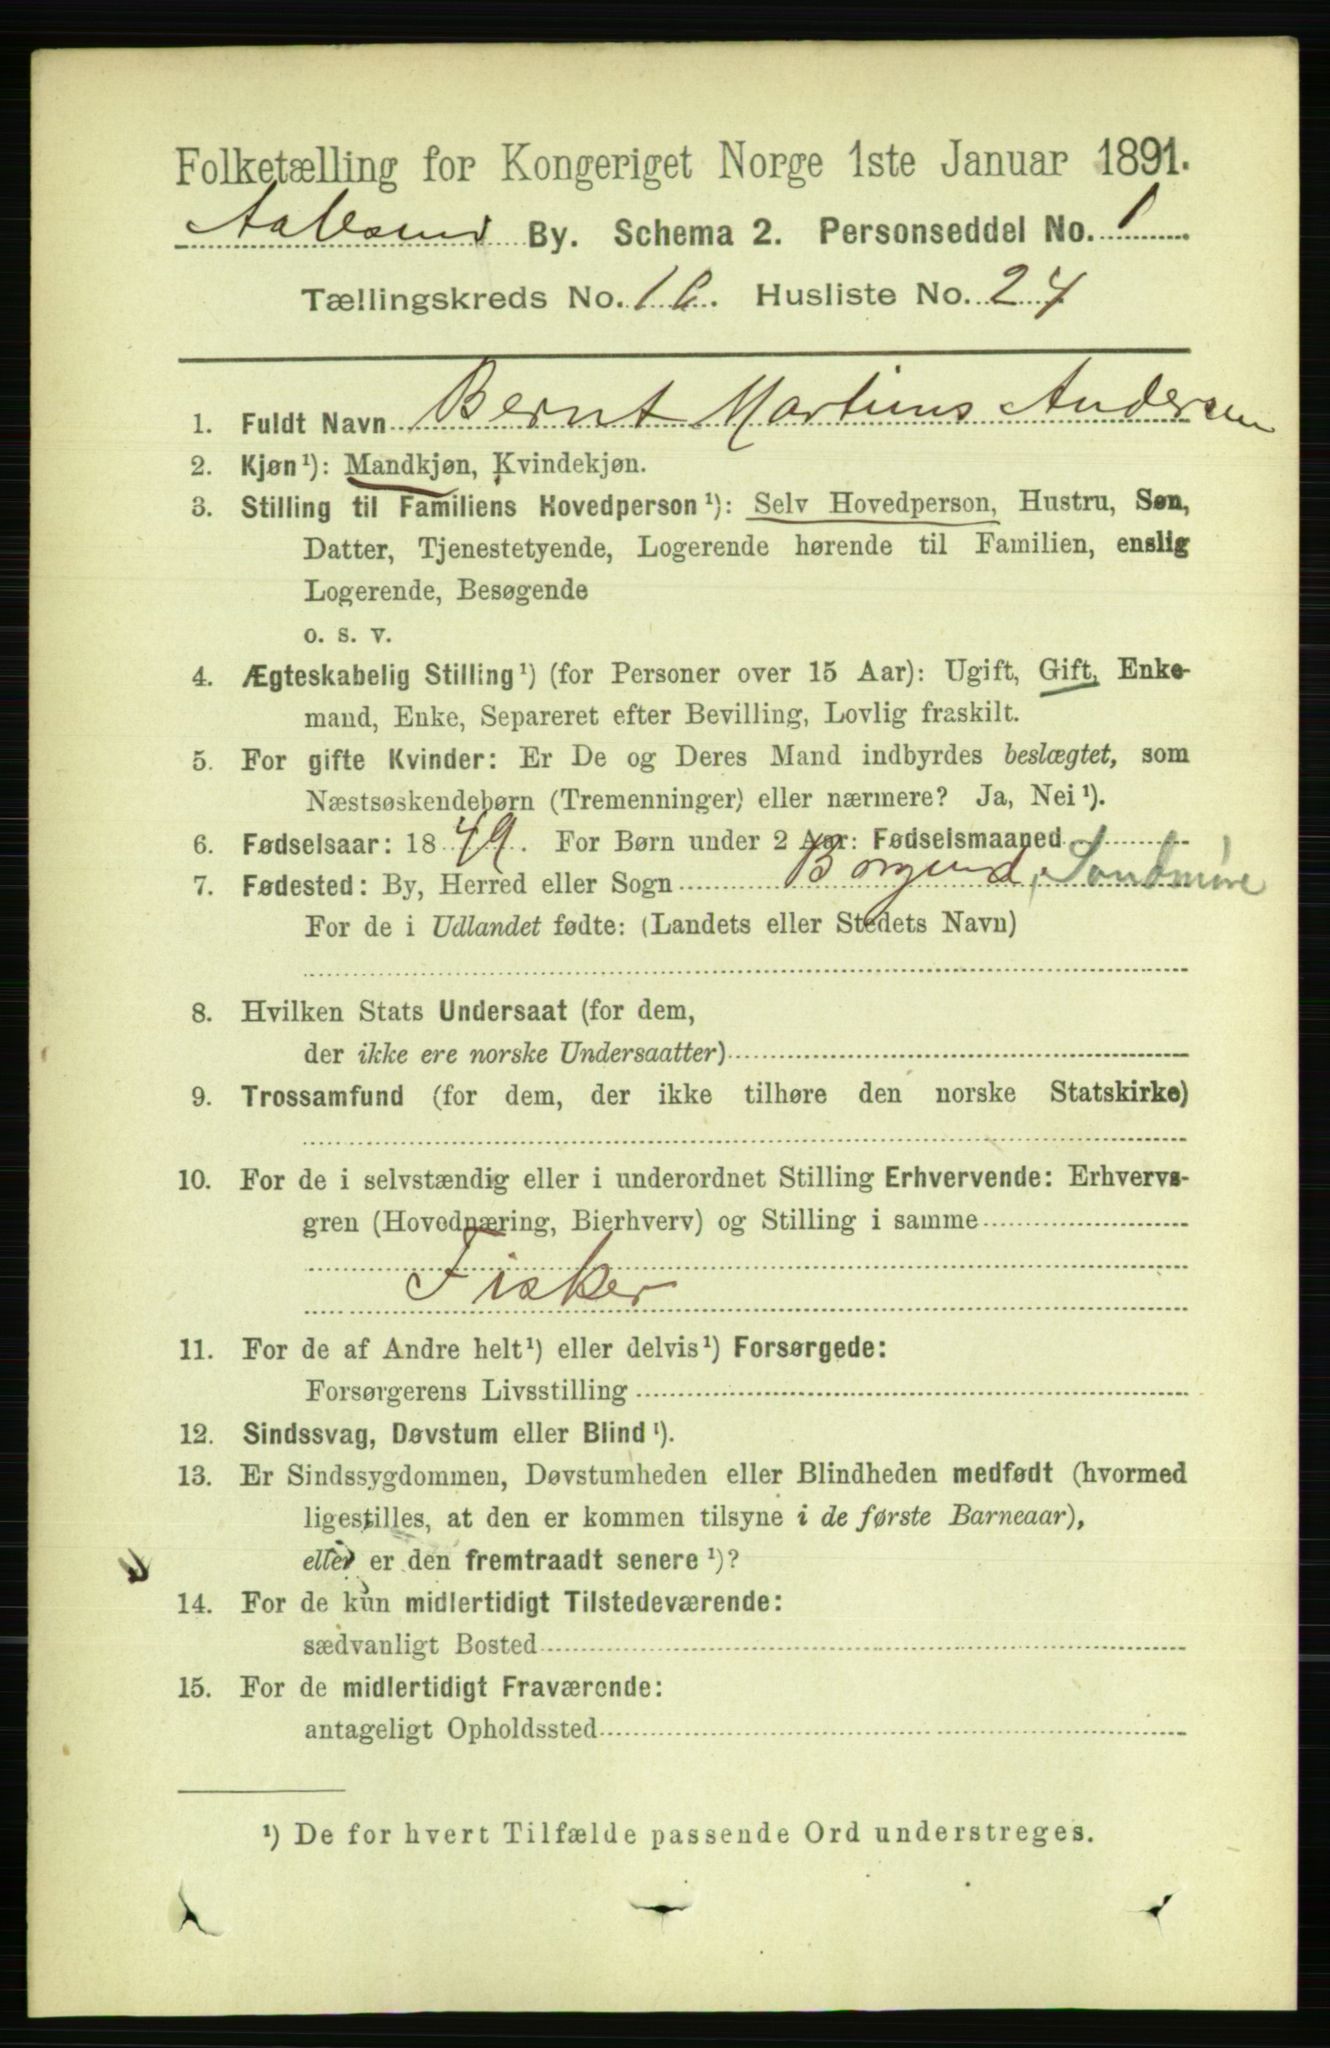 Folketælling for Kongeriget Norge 1ste Januar 1891.
Aalesund By. Schema 2. Personseddel No. 1
Tællingskreds No. 10. Husliste No. 24
1. Fuldt Navn Bernt Martinus Andersen
2. Kjøn¹): Mandkjøn, Kvindekjøn.
3. Stilling til Familiens Hovedperson¹): Selv Hovedperson, Hustru, Søn,
Datter, Tjenestetyende, Logerende hørende til Familien, enslig
Logerende, Besøgende
o. s. v.
4. Ægteskabelig Stilling¹) (for Personer over 15 Aar): Ugift, Gift, Enke-
mand, Enke, Separeret efter Bevilling, Lovlig fraskilt.
5. For gifte Kvinder: Er De og Deres Mand indbyrdes beslægtet, som
Næstsøskendebørn (Tremenninger) eller nærmere? Ja, Nei¹).
6. Fødselsaar: 1849. For Børn under 2 Aar: Fødselsmaaned
7. Fødested: By, Herred eller Sogn Borgund, Søndmøre
For de i Udlandet fødte: (Landets eller Stedets Navn)
8. Hvilken Stats Undersaat (for dem,
der ikke ere norske Undersaatter)
9. Trossamfund (for dem, der ikke tilhøre den norske Statskirke)
10. For de i selvstændig eller i underordnet Stilling Erhvervende: Erhvervs-
gren (Hovednæring, Bierhverv) og Stilling i samme
Fisker
11. For de af Andre helt¹) eller delvis¹) Forsørgede:
Forsørgerens Livsstilling
12. Sindssvag, Døvstum eller Blind¹).
13. Er Sindssygdommen, Døvstumheden eller Blindheden medfødt (hvormed
ligestilles, at den er kommen tilsyne i de første Barneaar),
eller er den fremtraadt senere¹)?
14. For de kun midlertidigt Tilstedeværende:
sædvanligt Bosted
15. For de midlertidigt Fraværende:
antageligt Opholdssted
¹) De for hvert Tilfælde passende Ord understreges.